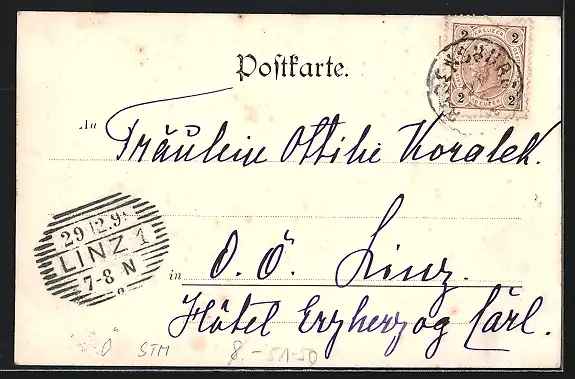 2 KREUZER 2
2 KREUZER 2
Postkarte.
An Fräulein Ottilie Koralek.
29 12 9
LINZ 1
7-8 N
in O. Ö. Linz.
Hôtel Erzherzog Carl.
Ö STM 8.-51-50